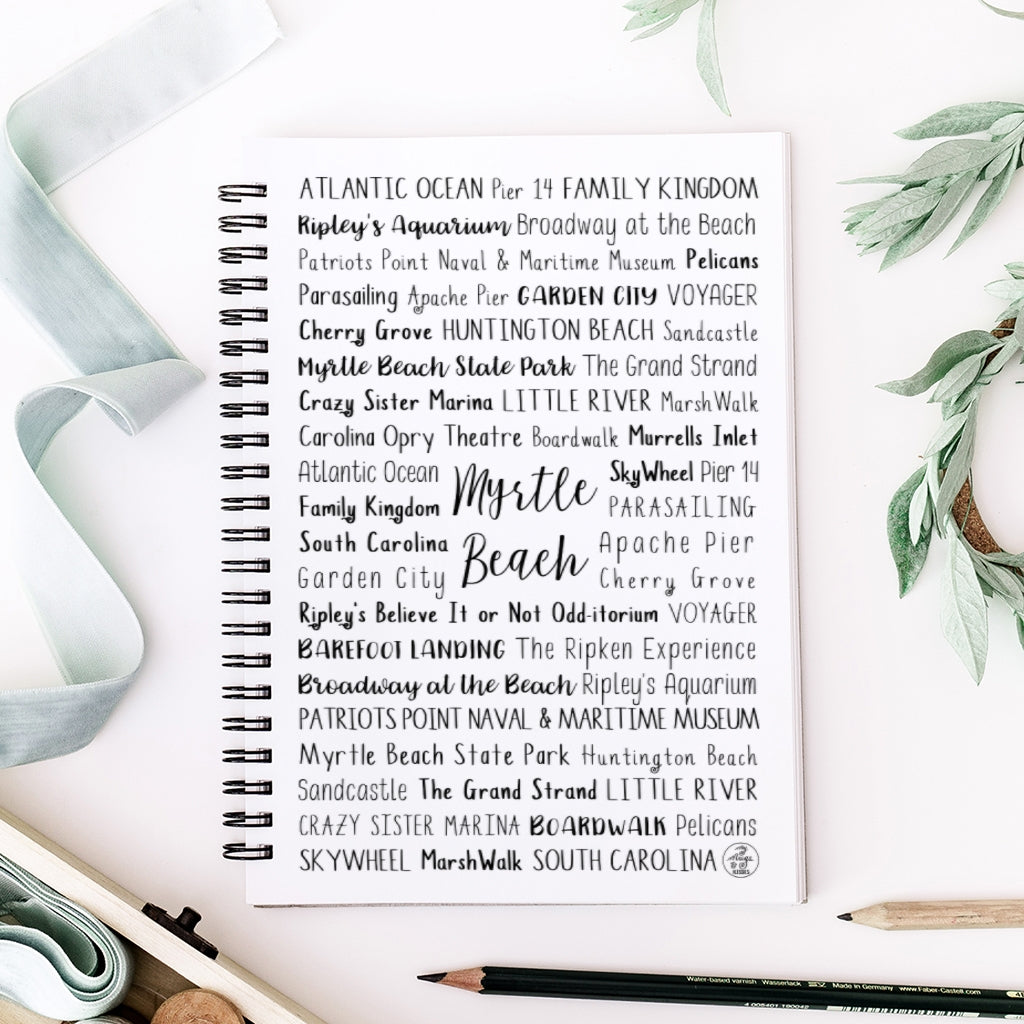 ATLANTIC OCEAN Pier 14 FAMILY KINGDOM
Ripley's Aquarium Broadway at the Beach
Patriots Point Naval & Maritime Museum Pelicans
Parasailing Apache Pier GARDEN CITY VOYAGER
Cherry Grove HUNTINGTON BEACH Sandcastle
Myrtle Beach State Park The Grand Strand
Crazy Sister Marina LITTLE RIVER MarshWalk
Carolina Opry Theatre Boardwalk Murrells Inlet
Atlantic Ocean SkyWheel Pier 14
Myrtle
Family Kingdom PARASAILING
South Carolina Apache Pier
Beach
Garden City Cherry Grove
Ripley's Believe It or Not Odd-itorium VOYAGER
BAREFOOT LANDING The Ripken Experience
Broadway at the Beach Ripley's Aquarium
PATRIOTS POINT NAVAL & MARITIME MUSEUM
Myrtle Beach State Park Huntington Beach
Sandcastle The Grand Strand LITTLE RIVER
CRAZY SISTER MARINA BOARDWALK Pelicans
SKYWHEEL MarshWalk SOUTH CAROLINA
KISSES
Water-based varnish Wasserlack Made in Germany www.Faber-Castell.com
4 005401 190042